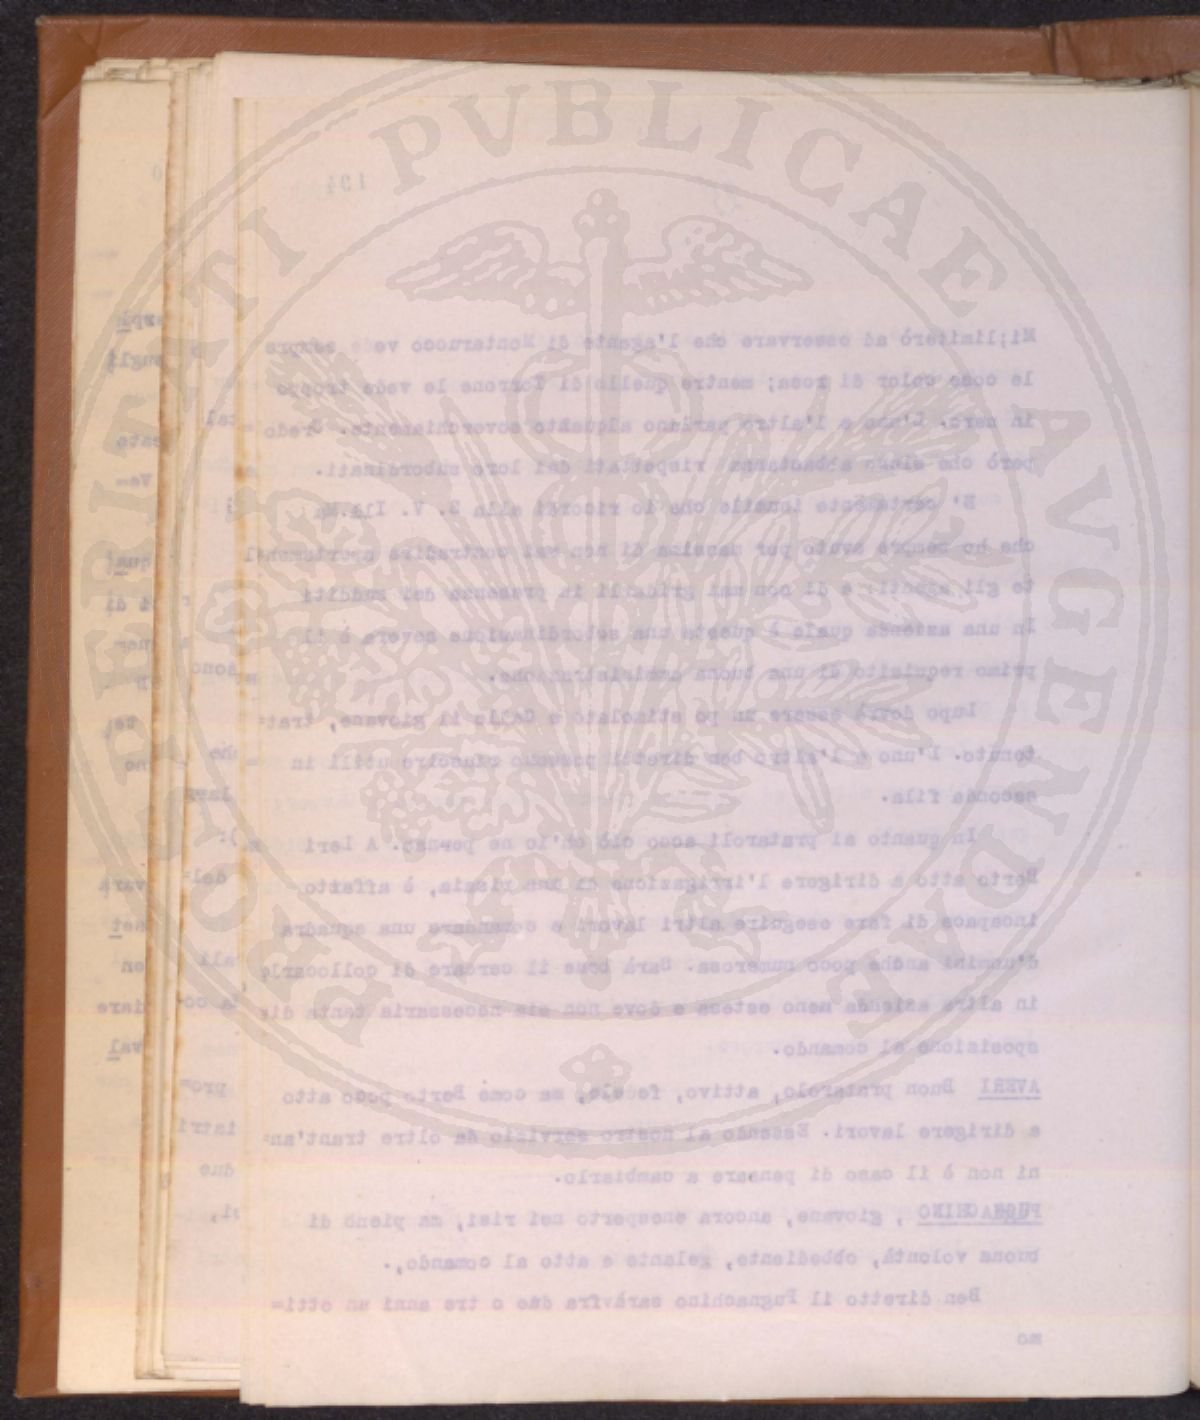 194
Mi;limiterò ad osservare che l'agente di Montarucco vede sempre
le cose color di rosa; mentre quello di Torrone le vede troppo
in nero. L'uno e l'altro parlano alquanto soverchiamente. Credo
però che siano abbastanza rispettati dai loro subordinati.
E' certamente inutile che io ricordi alla S. V. Ill.ma
che ho sempre avuto per massima di non mai contradire apertamen=
te gli agenti e di non mai gridarli in presenza dei sudditi
In una azienda quale è questa una subordinazione severa è il
primo requisito di una buona amministrazione.
Lupo dovrà essere un po stimolato e Gallo il giovane, trat=
tenuto. L'uno e l'altro ben diretti possono riuscire utili in
seconda fila.
In quanto ai prataroli ecco ciò ch'io ne penso. A Leri
Berto atto a dirigere l'irrigazione di una risaia, è affatto
incapace di fare eseguire altri lavori e comandare una squadra
d'uomini anche poco numerosa. Sarà bene il cercare di collocarlo
in altra azienda meno estesa e dove non sia necessaria tanta di=
sposizione al comando.
AVERI Buon pratarolo, attivo, fedele, ma come Berto poco atto
a dirigere lavori. Essendo al nostro servizio da oltre trant'an=
ni non è il caso di pensare a cambiarlo.
PUGNACHINO , giovane, ancora enesperto nei risi, ma pieno di
buona volontà, obbediente, zelante e atto al comando,.
Ben diretto il Pugnachino saràvfra due o tre anni un otti=
mo
PROSPERITATI PVBLICAE AVGENDAE